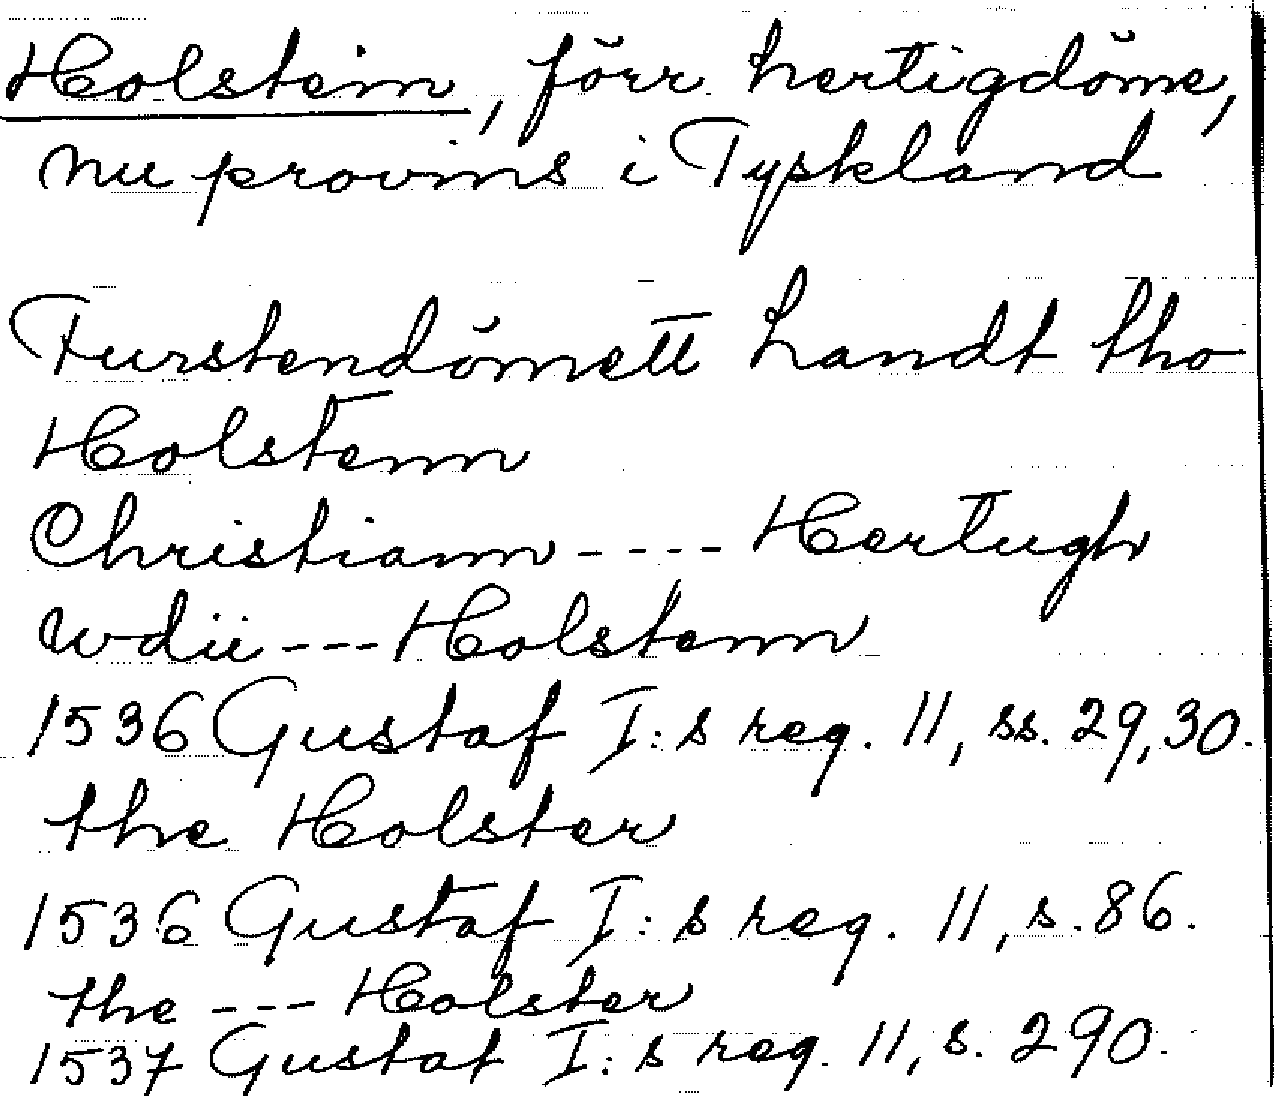 Holstein, förr hertigdöme,
nu provins i Tyskland
Furstendömett Landt tho
Holstenn
Christiann ---- Hertugh
wdii --- Holstenn
1536 Gustaf I:s reg. 11, ss. 29, 30.
the Holster
1536 Gustaf I:s reg. 11, s. 86.
the --- Holster
1537 Gustaf I:s reg. 11, s. 290.